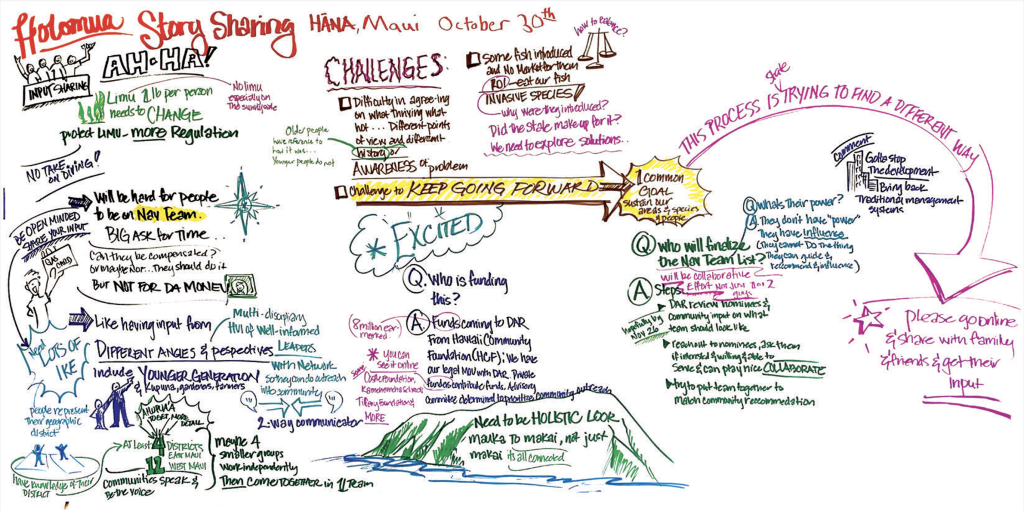 Holomua Story Sharing HĀNA, Maui October 30th
INPUT SHARING
AH·HA!
Limu 1lb per person
needs to CHANGE
No limu
especially on
protect LIMU - more Regulation
NO TAKE
ON DIVING!
Will be hard for people
to be on Nav Team.
BIG ASK for Time...
BE OPEN MINDED
SHARE YOUR INPUT
GAS CARD
Can they be compensated?
or maybe Not... They should do it
But NOT FOR DA MONEY!
Like having input from
Multi-disciplinary
HUI of Well-informed
LEADERS
DIFFERENT ANGLES & perspectives
include YOUNGER GENERATION
& kupuna, gardeners, farmers
with Network
so they can do outreach
into community
2-way communicator
Need
LOTS OF
IKE
people represent
their geographic
district
have knowledge of their
DISTRICT
AHUPUA'A
MORE
DETAIL
At Least
4 DISTRICTS
EAST MAUI
12 WEST MAUI
communities speak &
Be the voice
maybe 4
smaller groups
work independently
Then come TOGETHER in 1 Team
CHALLENGES:
Difficulty in agree-ing
on what thriving what
not... Different points
of view and different
history or
AWARENESS of problem
Older people
have reference to
how it was...
Younger people do not
Challenge to KEEP GOING FORWARD
Some fish introduced
and No Market for them
ROI - eat our fish
INVASIVE SPECIES!
why were they introduced?
Did the state make up for it?
We need to explore solutions...
how to balance?
1 common
GOAL
sustain our
areas & species
& people
* EXCITED
Q. Who is funding
this?
A. Funds coming to DAR
From Hawaii Community
Foundation (HCF); We have
our legal MOU with DAR. Private
funders contribute funds. Advisory
Committee determined to prioritize community outreach
8 million ear-
marked
* You can
see it online
Some
Castle Foundation,
Kamehameha Schools,
Tiffany Foundation &
MORE
Need to be HOLISTIC LOOK
mauka to makai, not just
makai it's all connected
THIS PROCESS IS state TRYING TO FIND A DIFFERENT WAY
comment
Gotta stop
The development
Bring back
Traditional management
systems
Q What's Their power?
A They don't have "power"
They have influence
(They cannot Do the thing
They can guide &
recommend & influence)
Q Who will finalize
the Nav Team List?
will be collaborative
Effort Not Just 1 or 2
guys
A Steps:
hopefully by
Nov 26
DAR review nominees &
Community input on what
team should look like
reach out to nominees, ask them
if interested & willing & able to
serve & can play nice COLLABORATE
try to put team together to
match community recommendation
please go online
& share with family
& friends & get their
Input